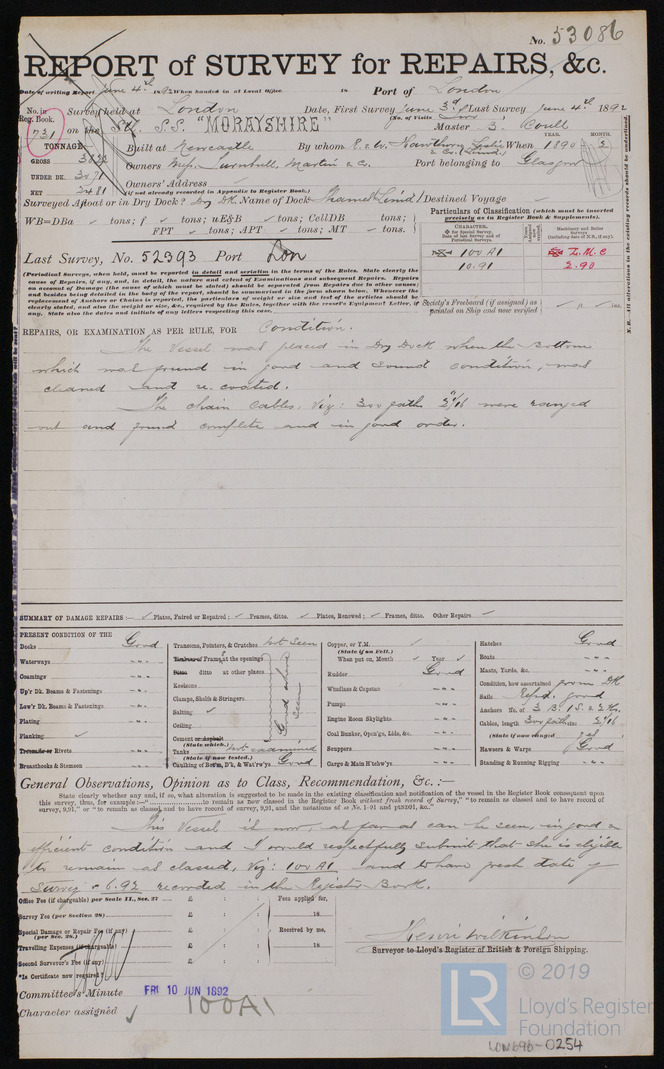 No. 53086
REPORT of SURVEY for REPAIRS, &c.
Date of writing Report June 4th 1892 When handed in at Local Office 18 Port of London
No. in Reg. Book. Survey held at London Date, First Survey June 3d Last Survey June 4th 1892
(No. of Visits)
731 on the S.S. "MORAYSHIRE" Master J. Coull
TONNAGE Built at Newcastle By whom R. & W. Hawthorn Leslie & Co. When 1890 YEAR. MONTH. 2
GROSS Owners Mess. Turnbull, Martin & Co. Port belonging to Glasgow
UNDER DK. 3071
NET 2481 Owners' Address
(if not already recorded in Appendix to Register Book.)
Surveyed Afloat or in Dry Dock? Dry Dk Name of Dock Thames (Lim'd) Destined Voyage
WB=DBa tons; f tons; uE&B tons; CellDB tons;
FPT tons; APT tons; MT tons.
Particulars of Classification (which must be inserted precisely as in Register Book & Supplements).
CHARACTER.
Machinery and Boiler Surveys (including date of N.B., if any).
100 A1 L.M.C
10.91 2.90
Last Survey, No. 52393 Port Lon
(Periodical Surveys, when held, must be reported in detail and seriatim in the terms of the Rules. State clearly the
cause of Repairs, if any, and, in detail, the nature and extent of Examinations and subsequent Repairs. Repairs
on account of Damage (the cause of which must be stated) should be separated from Repairs due to other causes;
and besides being detailed in the body of the report, should be summarised in the form shown below. Whenever the
replacement of Anchors or Chains is reported, the particulars of weight or size and test of the articles should be
clearly stated, and also the weight or size, &c., required by the Rules, together with the vessel's Equipment Letter, if
any. State also the dates and initials of any letters respecting this case.
Society's Freeboard (if assigned) as painted on Ship and now verified
N.B. All alterations in the existing records should be underlined.
REPAIRS, OR EXAMINATION AS PER RULE, FOR Condition.
The Vessel was placed in Dry Dock when the bottom
which was found in good and sound condition, was
cleaned and re. coated.
The chain cables, viz: 300 fath 2 1/16 were ranged
out and found complete and in good order.
SUMMARY OF DAMAGE REPAIRS:— Plates, Faired or Repaired; Frames, ditto. Plates, Renewed; Frames, ditto. Other Repairs
PRESENT CONDITION OF THE
Decks Good
Waterways
Coamings
Up'r Dk. Beams & Fastenings
Low'r Dk. Beams & Fastenings
Plating
Planking
Treenails or Rivets
Breasthooks & Stemson
Transoms, Pointers, & Crutches Not Seen
Timbers or Frames at the openings
Ditto ditto at other places
Keelsons
Clamps, Shelfs & Stringers
Salting
Ceiling
Good where seen
Cement or Asphalt
(State which.)
Tanks Not examined
(State if now tested.)
Caulking of Bot'm, D'k, & Wat'rw'ys Good
Copper, or Y.M.
(State if on Felt.)
When put on, Month Year
Rudder Good
Windlass & Capstan
Pumps
Engine Room Skylights
Coal Bunker, Open'gs, Lids, &c.
Scuppers
Cargo & Main H'tchw'ys
Hatches Good
Boats
Masts, Yards, &c.
Condition, how ascertained from Dk
Sails Repd. good
Anchors No. of 3 B. 1 S. & 2 K.
Cables, length 300 fath size 2 1/16
(State if now ranged) Yes
Hawsers & Warps Good
Standing & Running Rigging
General Observations, Opinion as to Class, Recommendation, &c.:—
State clearly whether any and, if so, what alteration is suggested to be made in the existing classification and notification of the vessel in the Register Book consequent upon
this survey, thus, for example:—"..........to remain as now classed in the Register Book without fresh record of Survey," "to remain as classed and to have record of
survey, 9,91," or "to remain as classed, and to have record of survey, 9,91, and the notations of ss No. 1-91 and ptNDB91, &c."
This Vessel is now, as far as can be seen, in good &
efficient condition and I would respectfully submit that she is eligible
to remain as classed, viz: 100 A1 and to have fresh date of
survey 6.92 recorded in the Register Book.
Office Fee (if chargeable) per Scale II., Sec. 27 £ : : Fees applied for,
Survey Fee (per Section 28) £ : : 18
Special Damage or Repair Fee (if any) (per Sec. 28.) £ : : Received by me,
Travelling Expenses (if chargeable) £ : : 18
Second Surveyor's Fee (if any) £ : :
*Is Certificate now required?
Henri Wilkinson
Surveyor to Lloyd's Register of British & Foreign Shipping.
Committee's Minute FRI 10 JUN 1892
Character assigned 100A1
LR © 2019
Lloyd's Register
Foundation
LON696-0254